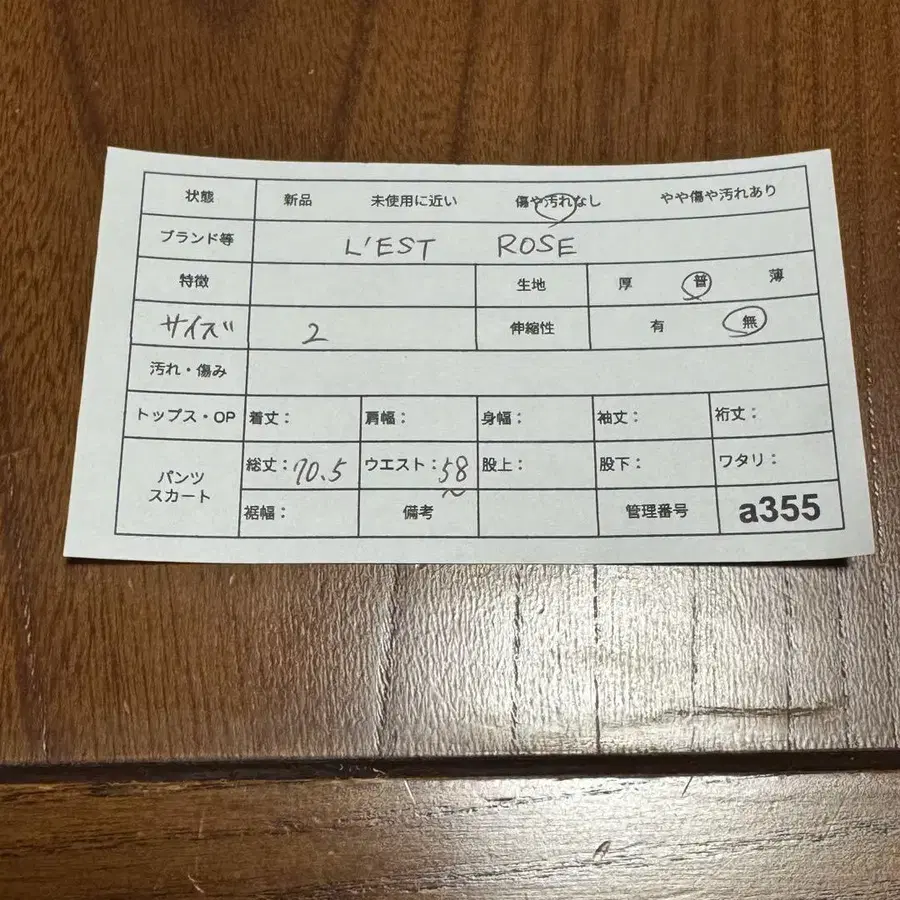 状態 新品 未使用に近い 傷や汚れなし やや傷や汚れあり
ブランド等 L'EST ROSE
特徴 生地 厚 普 薄
サイズ 2 伸縮性 有 無
汚れ・傷み
トップス・OP 着丈: 肩幅: 身幅: 袖丈: 裄丈:
パンツ スカート 総丈:70.5 ウエスト:58〜 股上: 股下: ワタリ:
裾幅: 備考 管理番号 a355